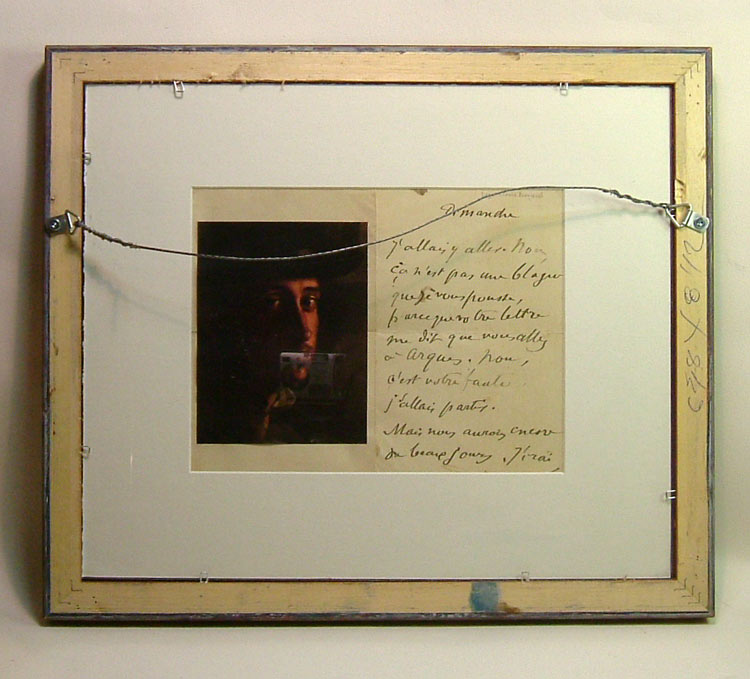 Dimanche
J'allais y aller. Non,
ça n'est pas une blague
que je vous pousse,
parceque votre lettre
me dit que vous allez
à Arques. Non,
c'est votre faute
j'allais partir.
Mais nous aurons encore
de beaux jours. J'irai